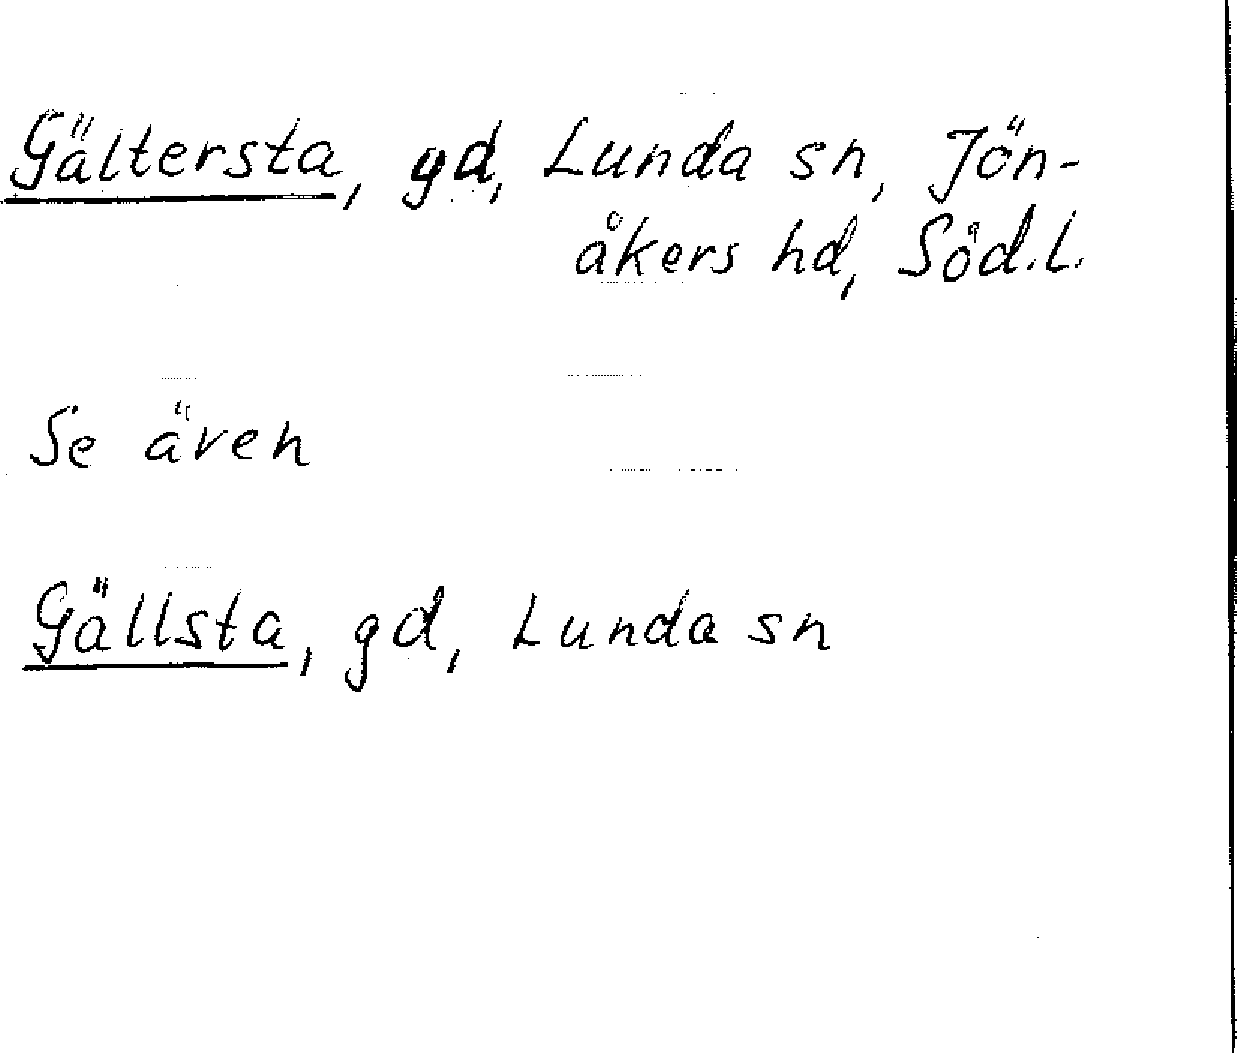 Gältersta, gd, Lunda sn, Jön-
åkers hd, Söd.l.
Se även
Gällsta, gd, Lunda sn